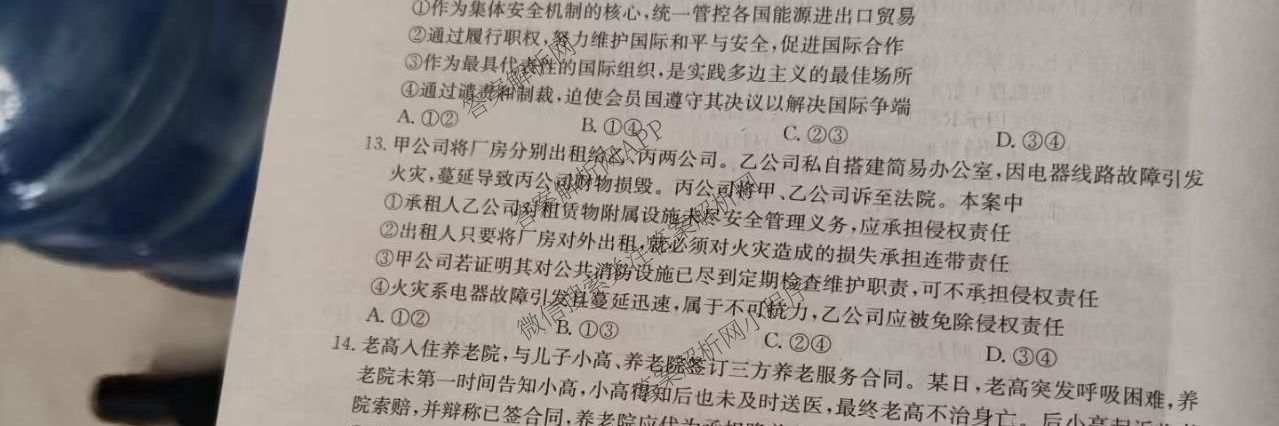 ①作为集体安全机制的核心,统一管控各国能源进出口贸易
②通过履行职权,努力维护国际和平与安全,促进国际合作
③作为最具代表性的国际组织,是实践多边主义的最佳场所
④通过谴责和制裁,迫使会员国遵守其决议以解决国际争端
A. ①② B. ①④ C. ②③ D. ③④
13. 甲公司将厂房分别出租给乙、丙两公司。乙公司私自搭建简易办公室,因电器线路故障引发
火灾,蔓延导致丙公司财物损毁。丙公司将甲、乙公司诉至法院。本案中
①承租人乙公司对租赁物附属设施未尽安全管理义务,应承担侵权责任
②出租人只要将厂房对外出租,就必须对火灾造成的损失承担连带责任
③甲公司若证明其对公共消防设施已尽到定期检查维护职责,可不承担侵权责任
④火灾系电器故障引发且蔓延迅速,属于不可抗力,乙公司应被免除侵权责任
A. ①② B. ①③ C. ②④ D. ③④
14. 老高入住养老院,与儿子小高、养老院签订三方养老服务合同。某日,老高突发呼吸困难,养
老院未第一时间告知小高,小高得知后也未及时送医,最终老高不治身亡。后小高起诉
院索赔,并辩称已签合同,养老院应代为承担
答案解析网
答案解析网APP
微信搜索关注答案解析网
答案解析网小程序